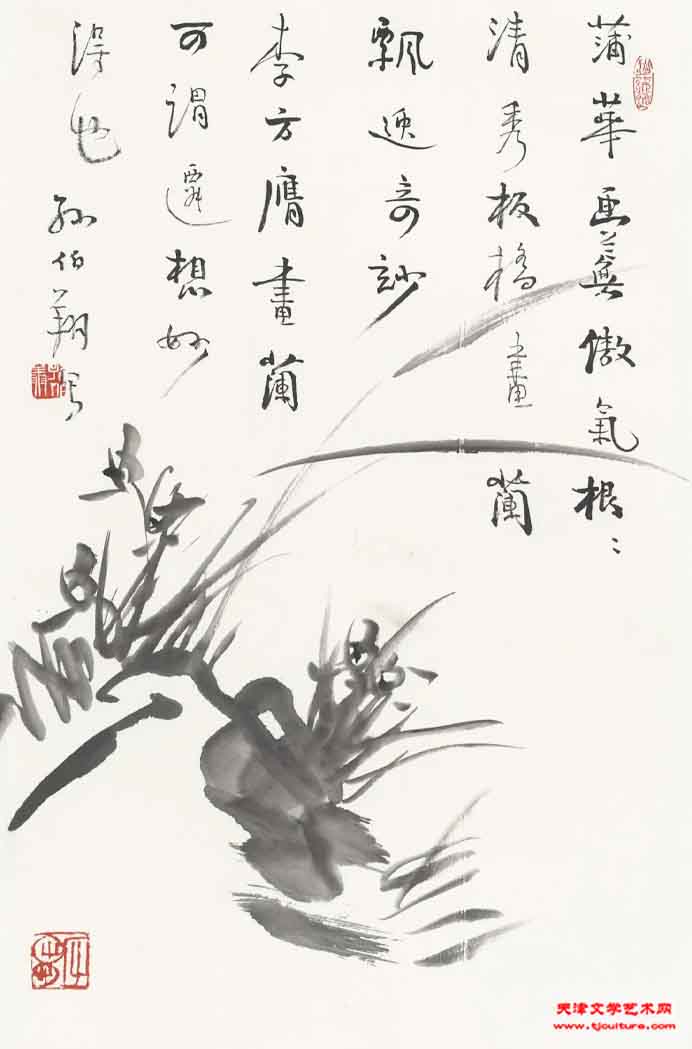 蒲華画傲氣根〻
清秀板橋畫蘭
飄逸奇玅
李方膺畫蘭
可謂遷想妙
得也
孫伯翔寫
天津文学艺术网
www.tjculture.com